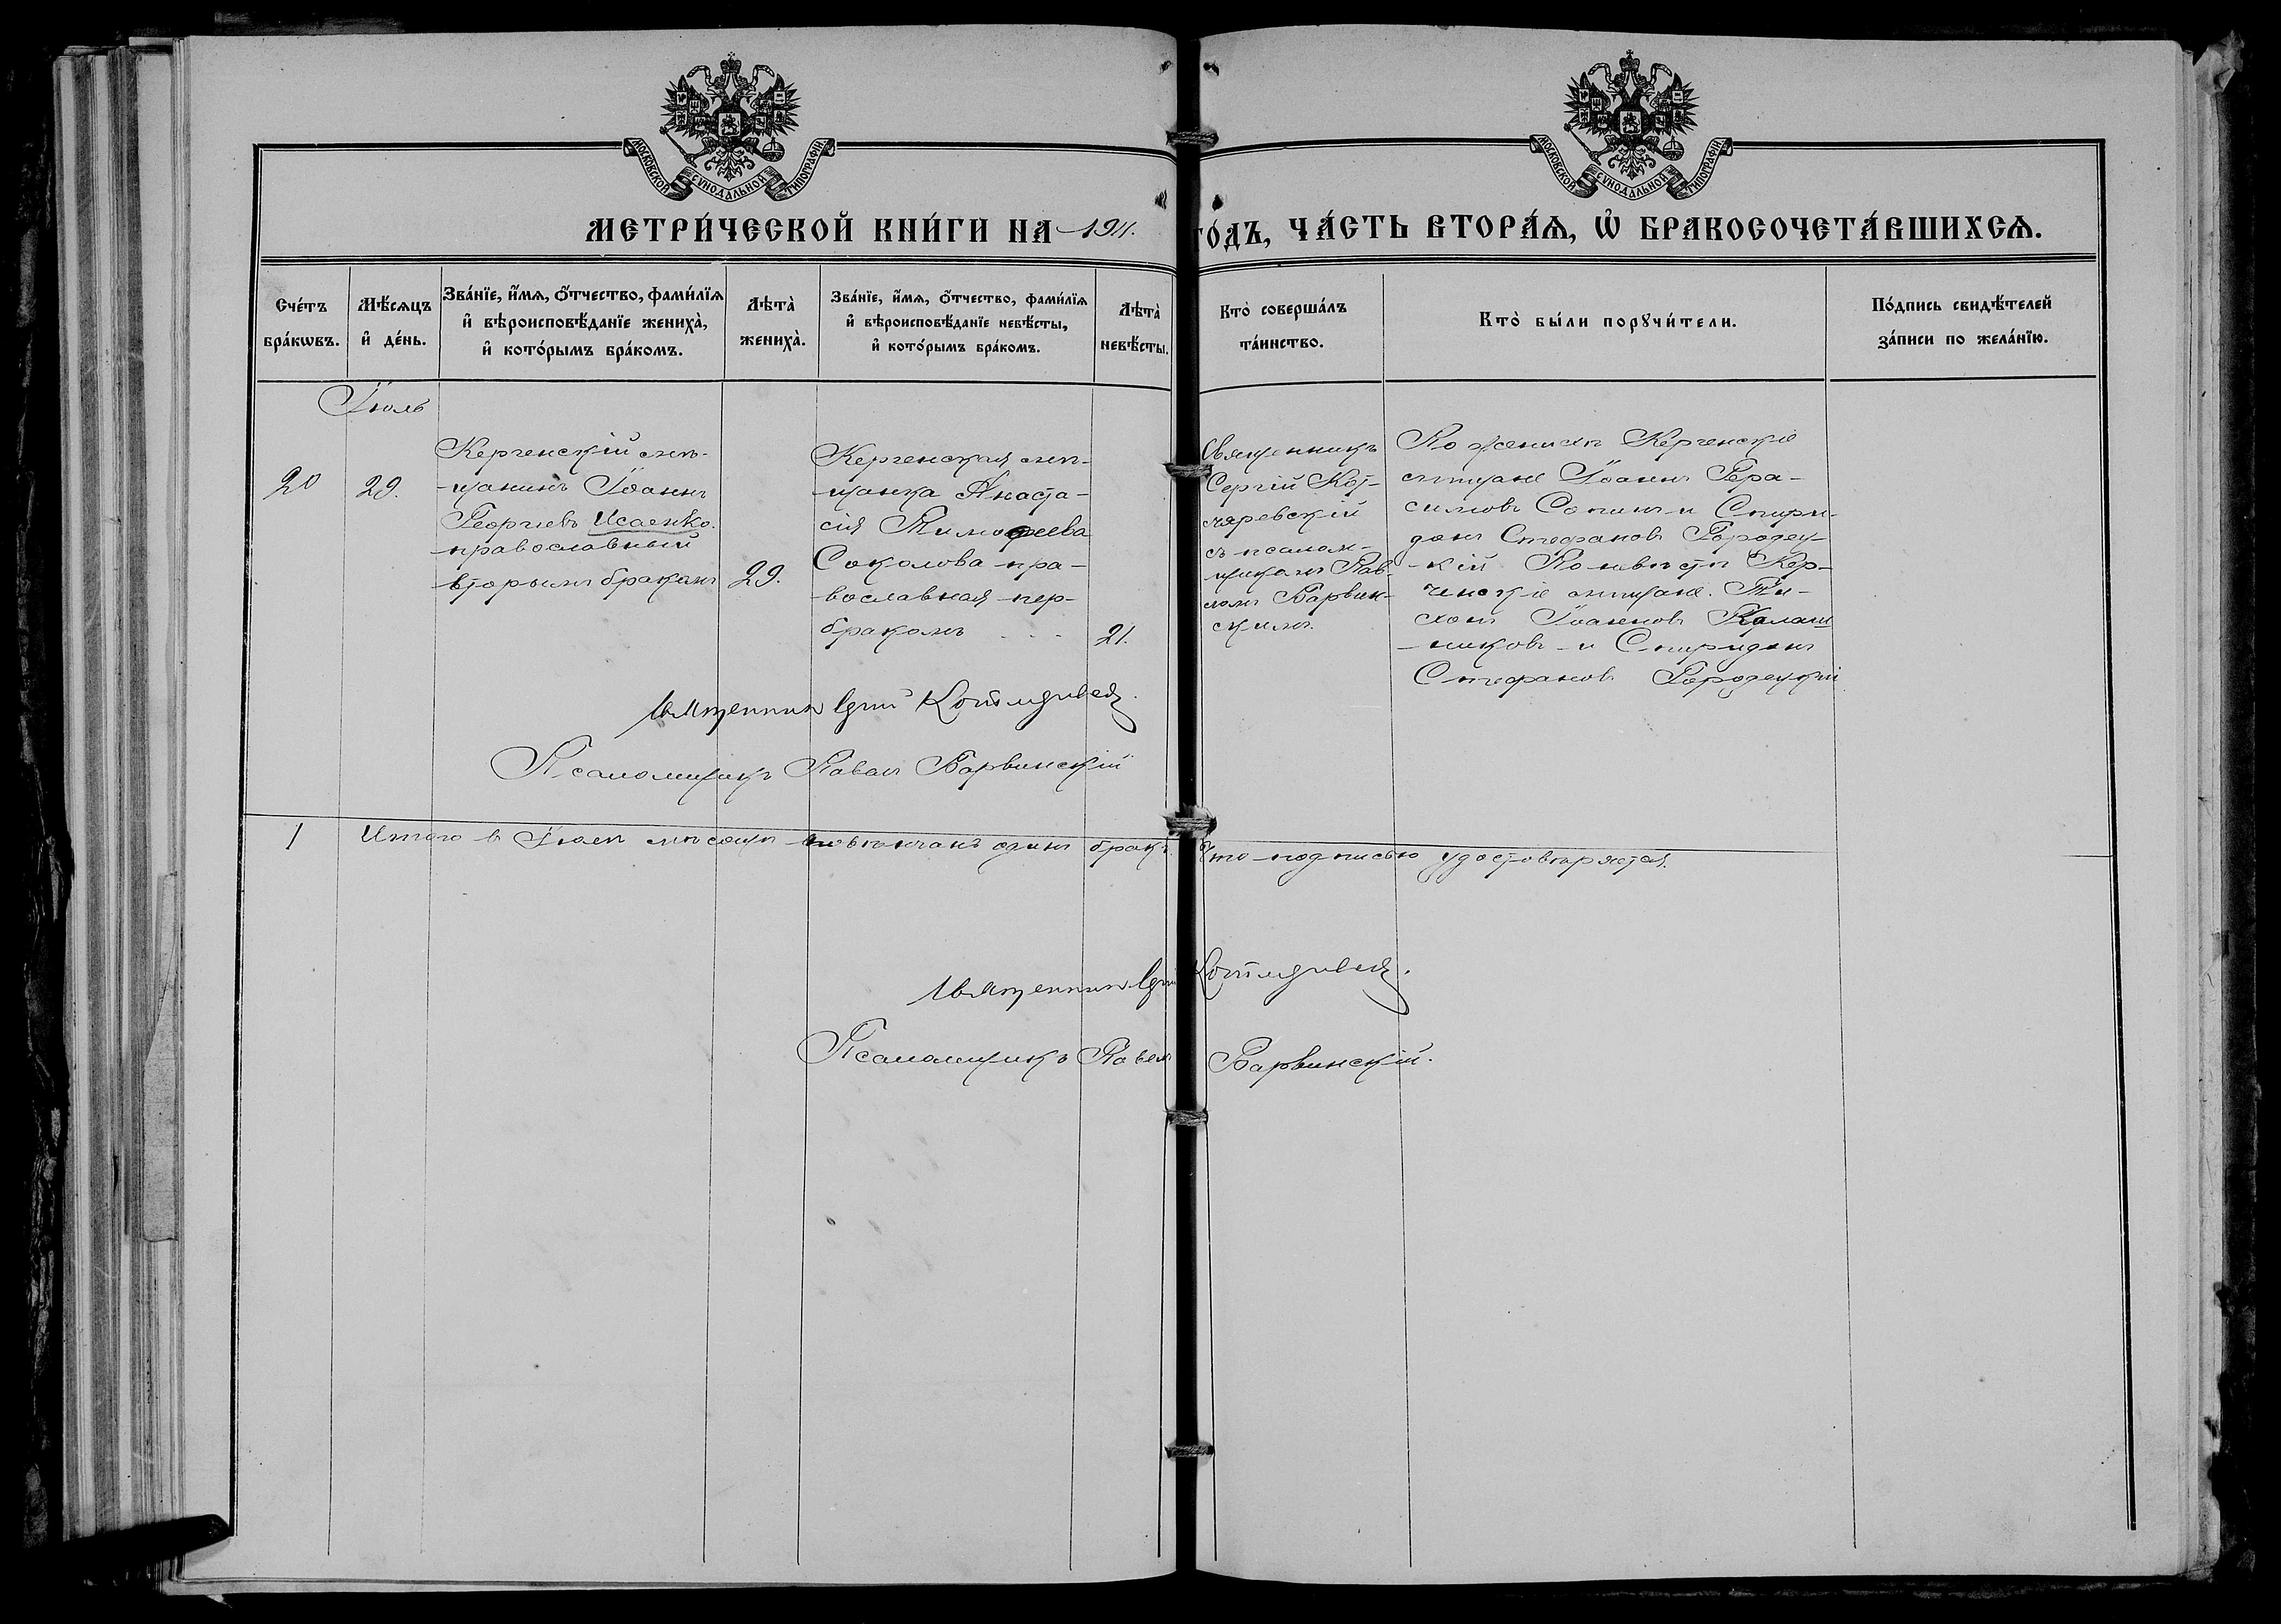 МОСКОВСКОЙ СУНОДАЛЬНОЙ ТИПОГРАФІИ
МОСКОВСКОЙ СУНОДАЛЬНОЙ ТИПОГРАФІИ
МЕТРИ́ЧЕСКОЙ КНИ́ГИ НА 1911. ГО́ДЪ, ЧА́СТЬ ВТОРА́Я, Ѡ БРАКОСОЧЕТА́ВШИХСЯ.
Сче́тъ
бра́кѡвъ.
Мѣ́сяцъ
и де́нь.
Зва́нїе, и́мя, ѻ́тчество, фами́лїя
и вѣроисповѣ́данїе жениха̀,
и кото́рымъ бра́комъ.
Лѣта̀
жениха̀.
Зва́нїе, и́мя, ѻ́тчество, фами́лїя
и вѣроисповѣ́данїе невѣ́сты,
и кото́рымъ бра́комъ.
Лѣта̀
невѣ́сты.
Кто̀ соверша́лъ
та́инство.
Кто̀ бы́ли порꙋчи́тели.
По́дпись свидѣ́телей
за́писи по жела́нїю.
Іюль
20
29.
Керченскій мѣ-
щанинъ Іоаннъ
Георгіевъ Исаенко.
православный
вторымъ бракомъ
29.
Керченская мѣ-
щанка Анаста-
сія Тимофеева
Соколова пра-
вославная пер-
бракомъ
21.
Священникъ
Сергій Кот-
ляревскій
съ псалом-
щикомъ Пав-
ломъ Барвин-
скимъ.
По женихѣ Керченскіе
мѣщане Іоаннъ Гера-
симовъ Сопинъ и Спири-
донъ Стефановъ Городец-
кій По невѣстѣ Кер-
ченскіе мѣщане. Ти-
хонъ Іоанновъ Калаш
никовъ и Спиридонъ
Стефановъ Городецкій
Священник Сергій Котляревскій.
Псаломщикъ Павелъ Барвинскій
1 Итого в Іюлѣ мѣсяцѣ повѣнчанъ одинъ бракъ Что подписью удостовѣряется.
Священник Сергій Котляревскій.
Псаломщикъ Павелъ Барвинскій.